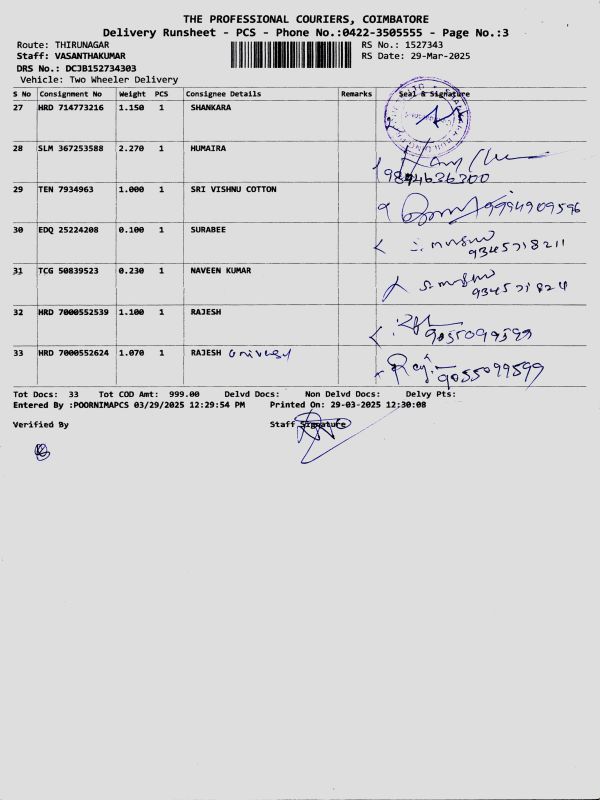 THE PROFESSIONAL COURIERS, COIMBATORE
Delivery Runsheet - PCS - Phone No.:0422-3505555 - Page No.:3
Route: THIRUNAGAR RS No.: 1527343
Staff: VASANTHAKUMAR RS Date: 29-Mar-2025
DRS No.: DCJB152734303
Vehicle: Two Wheeler Delivery
S No Consignment No Weight PCS Consignee Details Remarks Seal & Signature
27 HRD 714773216 1.150 1 SHANKARA
28 SLM 367253588 2.270 1 HUMAIRA
9894636300
29 TEN 7934963 1.000 1 SRI VISHNU COTTON 9994909596
30 EDQ 25224208 0.100 1 SURABEE
9345718211
31 TCG 50839523 0.230 1 NAVEEN KUMAR
32 HRD 7000552539 1.100 1 RAJESH
9055099599
33 HRD 7000552624 1.070 1 RAJESH
9055099599
Tot Docs: 33 Tot COD Amt: 999.00 Delvd Docs: Non Delvd Docs: Delvy Pts:
Entered By :POORNIMAPCS 03/29/2025 12:29:54 PM Printed On: 29-03-2025 12:30:08
Verified By Staff Signature